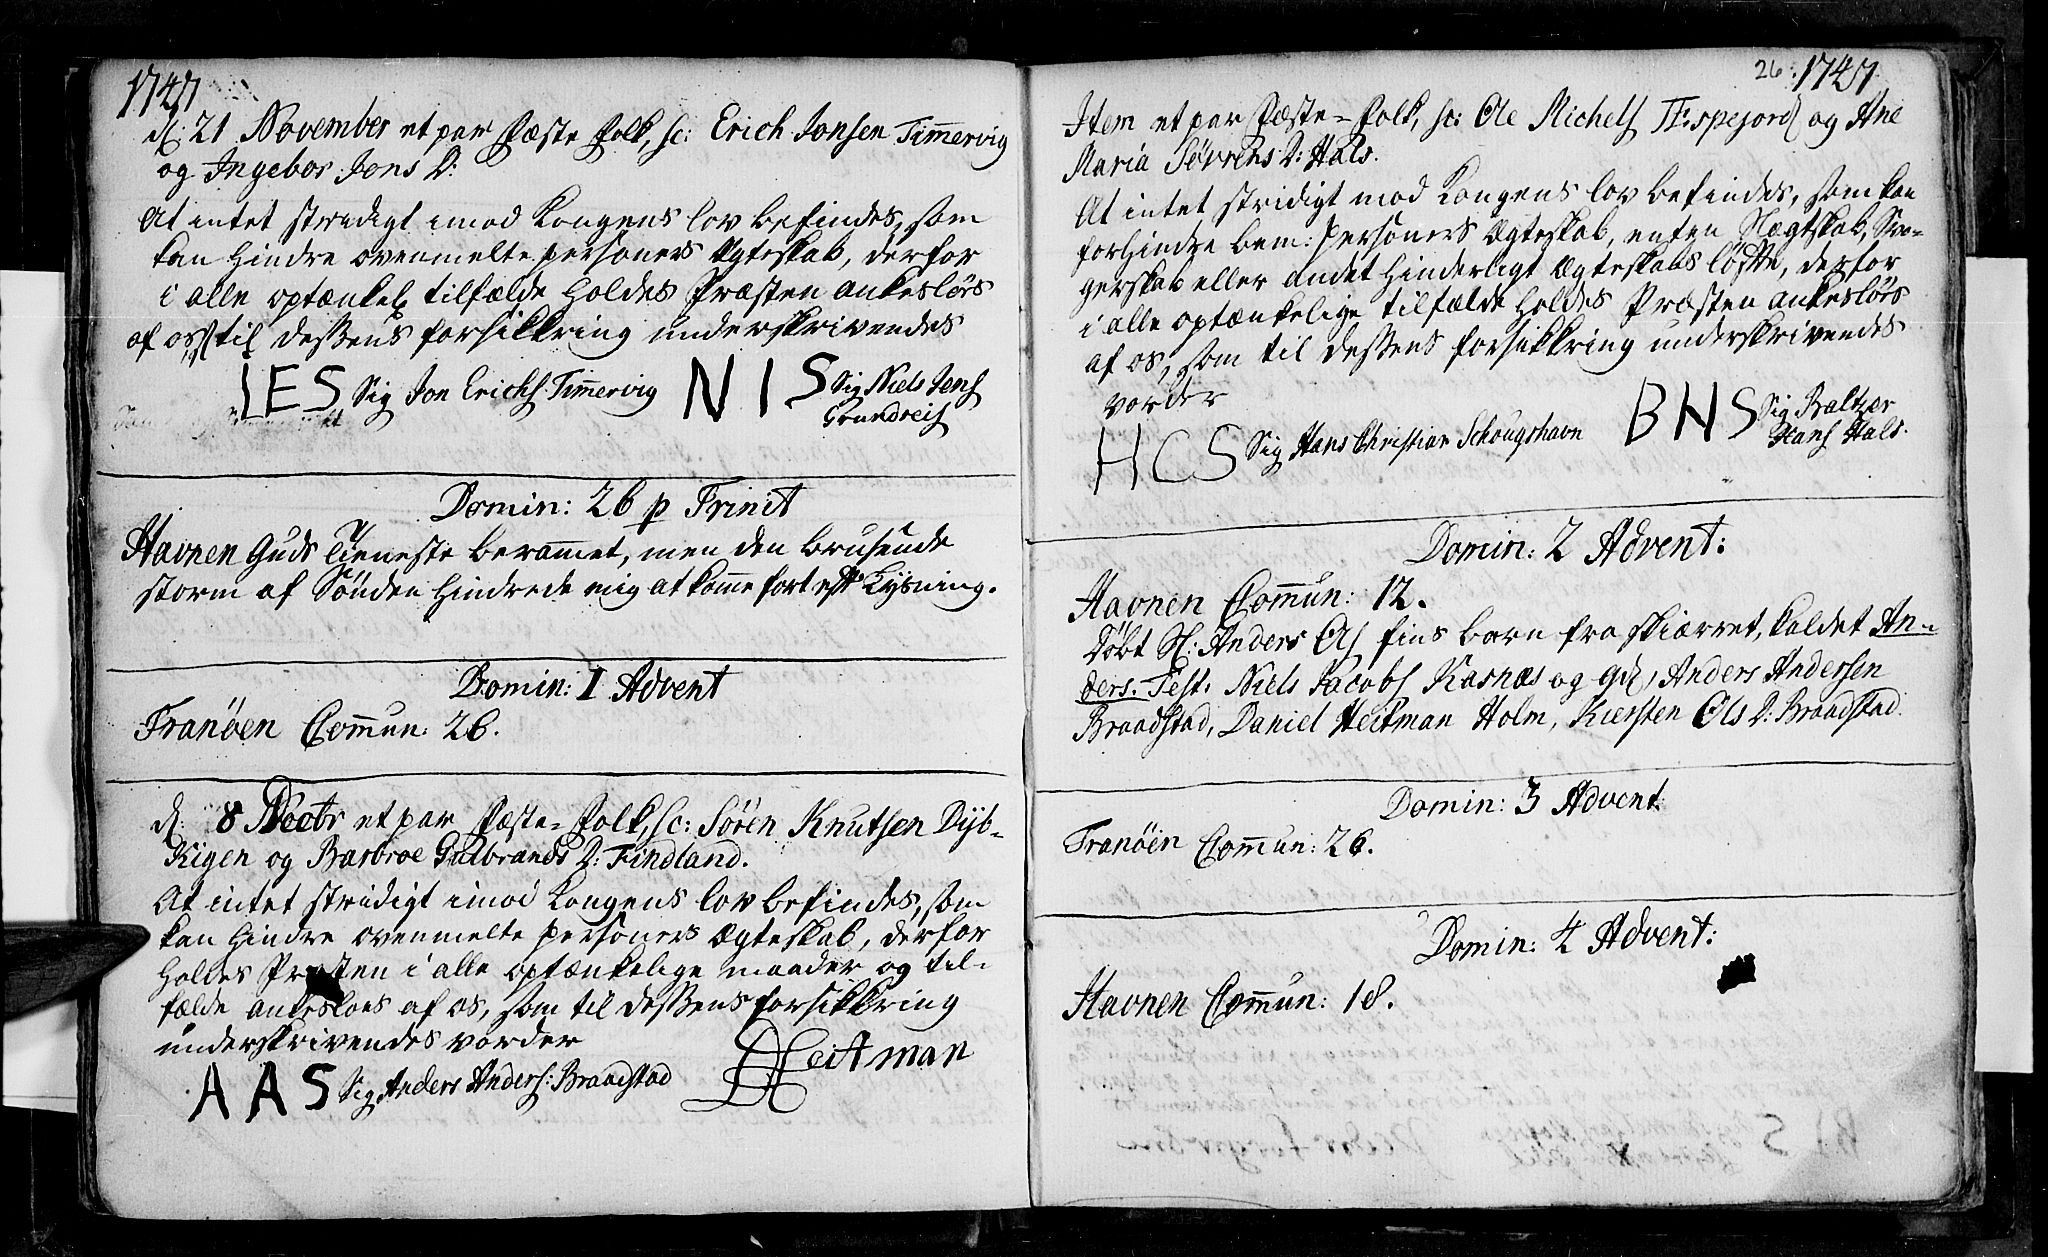 1747
d: 21 November et par Fæste Folk, sc: Erich Jonsen Timmervig
og Ingebor Jons D:
At intet stridigt imod Kongens lov befindes, som
kan hindre ovenmelte personers Ægteskab, derfor
i alle optænkel: tilfælde holdes Præsten ankesløs
af os, til dessens forsikkring underskrivendes
IES Sig Jon Erichs: Timmervig NIS Sig Niels Jens:
Grundreis
Domin: 26 p Trinit
Havnen Guds Tieneste berammet, men den brusende
storm af Sønden hindrede mig at komme fort efter Lysning.
Domin: 1 Advent
Tranöen Commun: 26.
d: 8 Decbr et par Fæste-Folk, sc: Sören Knutsen Dyb-
Kigen og Barbroe Gulbrands D: Findland.
At intet stridigt imod Kongens lov befindes, som
kan hindre ovenmelte personers Ægteskab, derfor
holdes Præsten i alle optænkelige maader og til-
fælde ankesløs af os, som til dessens forsikkring
underskrivendes vorder
AAS Sig Anders Anders: Braadstad Heitman
26. 1747
Item et par Fæste-Folk, sc: Ole Michels og Ane
Maria Sörens D: Hals.
At intet stridigt mod Kongens lov befindes, som kan
forhindre bem: personers Ægteskab, enten Slægtskab, Svo-
gerskab eller andet hinderligt Ægteskabs löfte, derfor
i alle optænkelige tilfælde holdes Præsten ankesløs
af os, som til dessens forsikkring underskrivendes
vorder
HCS Sig Hans Christian Schougshavn BHS Sig Baltzer
Hans: Hals.
Domin: 2 Advent:
Havnen Commun: 12.
Döbt Sl: Anders Ols: fins barn fra skiærret, kaldet An-
ders. Test. Niels Jacobs: Kasnæs og Anders Andersen
Braadstad, Daniel Heitman Holm, Kiersten Ols D: Braadstad.
Domin: 3 Advent:
Tranöen Commun: 26.
Domin: 4 Advent:
Havnen Commun: 18.